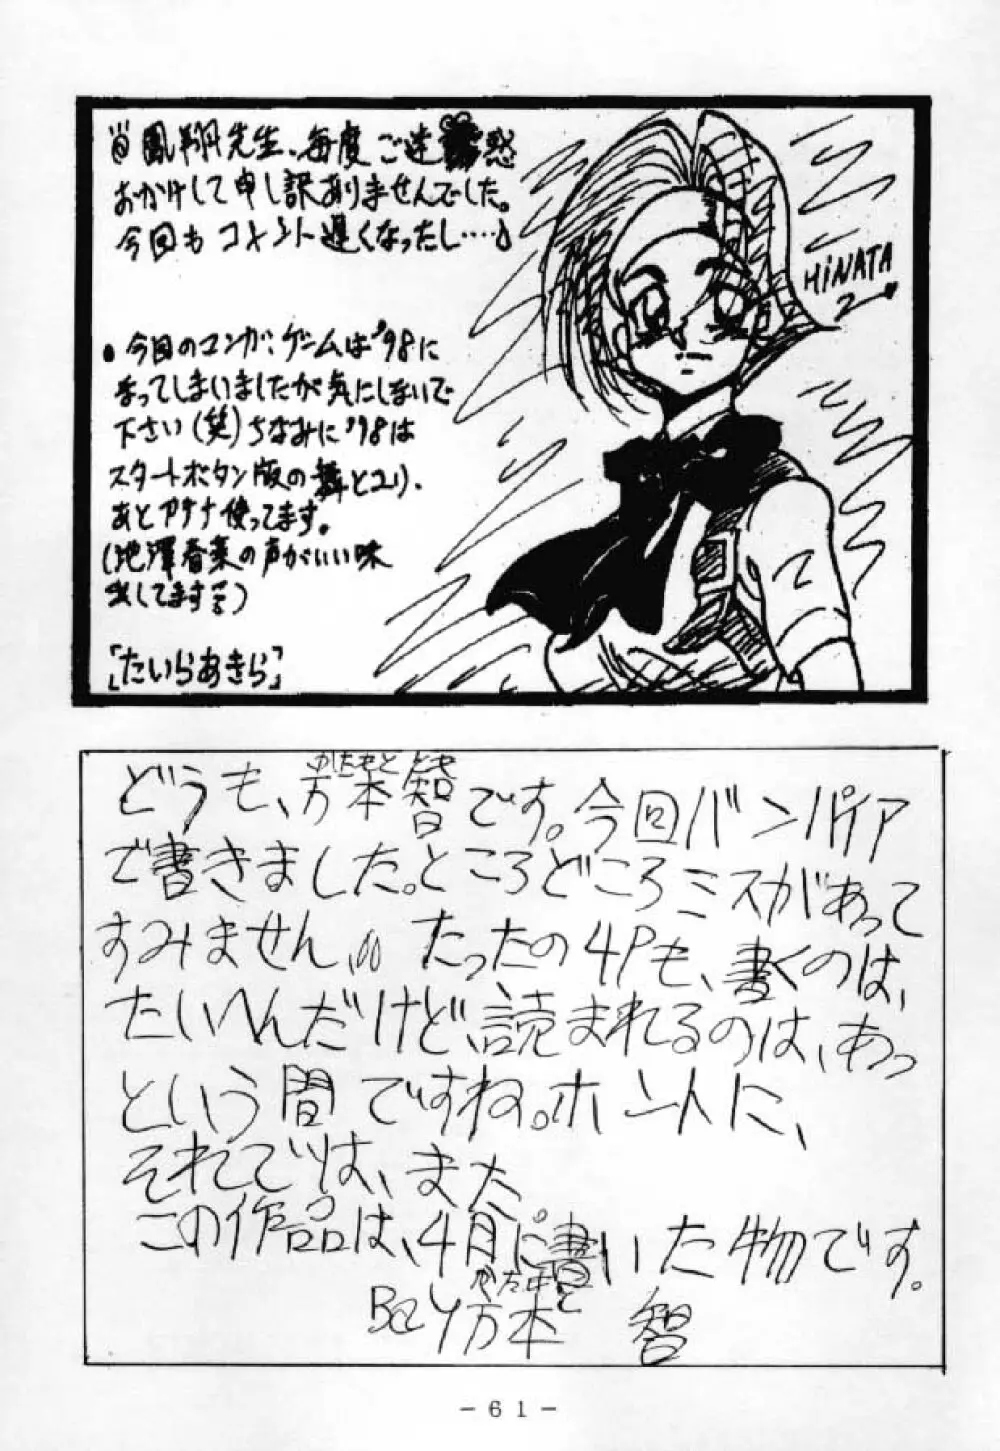 鳳翔先生、毎度ご迷惑
おかけして申し訳ありませんでした。
今回もコメント遅くなったし……♪
HiNATA
2
・今回のマンガ、ゲームは'98に
なってしまいましたが気にしないで
下さい(笑)ちなみに'98は
スタートボタン版の舞とユリ、
あとアテナ使ってます。
(池澤春菜の声がいい味
出してます)
「たいらあきら」
かたもと とも
どうも、方本智です。今回バンパイア
で書きました。ところどころミスがあって
すみません。たったの4Pも、書くのは、
たいへんだけど、読まれるのは、あっ
という間ですね。ホントに、
それでは、また。
この作品は、4月に書いた物です。
かたもと
By方本 智
-61-